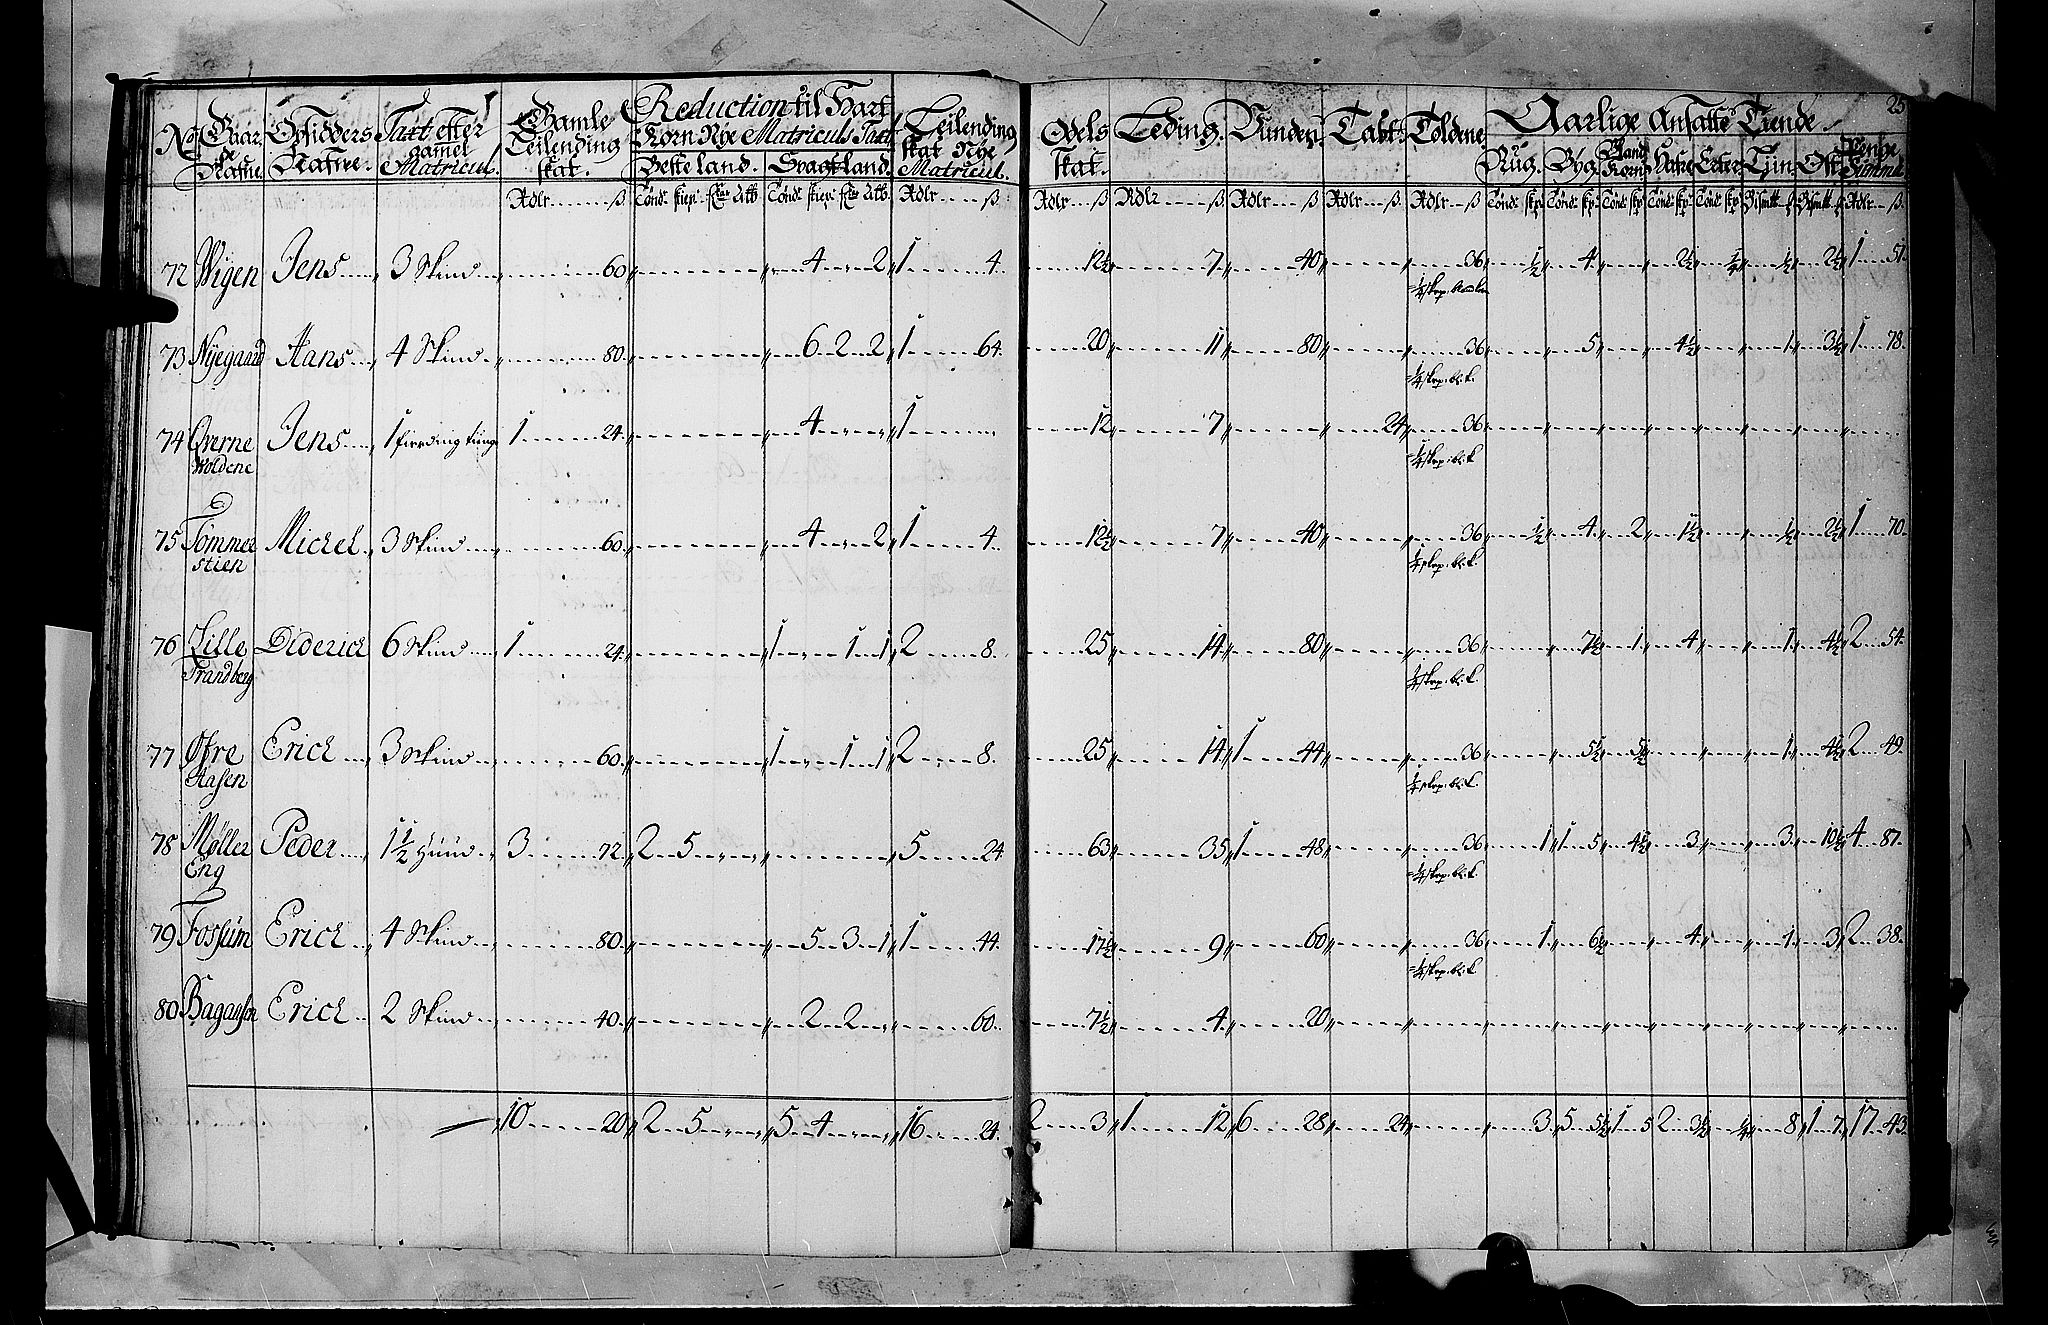 25
No Gaardenes Nafne. Opsidders Nafne. Taxt efter gamel Matricul. Gamle Leilending skat. Reduction til Hart Korn Nye Matriculs Taxt Leilending skat Nÿe Matricul. Odels skat. Leding. Vunden. Toldene Aarlige Ansatte Tiende
Beste land. Svagest land. Rug. Byg. Bland Korn Erter Penge Summa
Rdlr ß Rdlr ß Rdlr ß Rdlr ß Rdlr ß Rdlr ß Rdlr ß Rdlr ß
72 Wigen Jens 3 Skind 60 4 2 1 4 12½ 7 40 36 ½ 4 2½ ¼ ½ 2½ 1 51
¼ skrp.
73 Nÿegaard Hans 4 Skind 80 6 2 2 1 64 20 11 80 36 5 4½ 1 3½ 1 78
¼ skrp. bl: k.
74 Øverne Jens 1 fierding tunge 1 24 4 1 12 7 24 36
Woldene ¼ skrp. bl: k.
75 Tømmer Michel 3 Skind 60 4 2 1 4 12½ 7 40 36 ½ 4 2 1½ ½ 2½ 1 70
stien ¼ skrp. bl: k.
76 Lille Diderich 6 Skind 1 24 1 1 1 2 8 25 14 80 36 7½ 1 4 1 4½ 2 54
Trandberg ¼ skrp. bl: k.
77 Øfre Erich 3 Skind 60 1 1 1 2 8 25 14 1 44 36 5½ 5½ 1 4½ 2 49
Aasen ¼ skrp. bl: k.
78 Møller Peder 1½ Huud 3 72 2 5 5 24 63 35 1 48 36 1 1 5 4½ 3 3 10½ 4 87
Eng ¼ skrp. bl: k.
79 Fossum Erich 4 Skind 80 5 3 1 1 44 17½ 9 60 36 1 6½ 4 1 3 2 38
¼ skrp. bl: k.
80 Erich 2 Skind 40 2 2 60 7½ 4 20
10 20 2 5 5 4 16 24 2 3 1 12 6 28 24 3 5 5½ 1 5 2 3½ ¼ 8 1 7 17 43